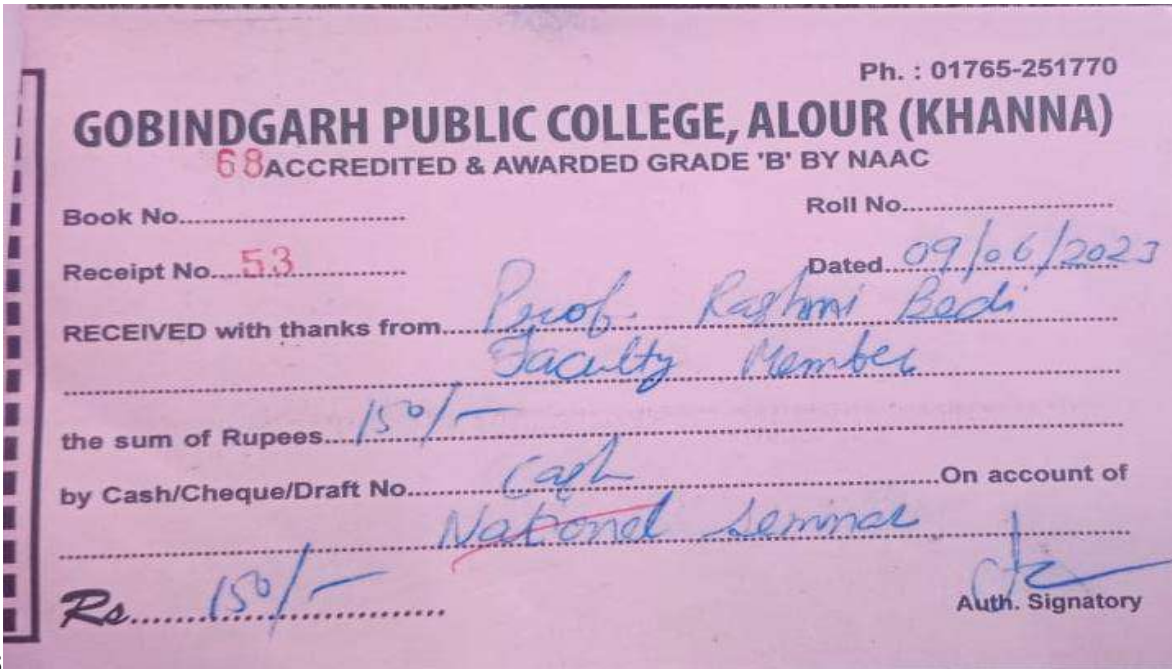 Ph. : 01765-251770
GOBINDGARH PUBLIC COLLEGE, ALOUR (KHANNA)
68 ACCREDITED & AWARDED GRADE 'B' BY NAAC
Book No............................ Roll No............................
Receipt No....53................ Dated...09/06/2023
RECEIVED with thanks from....Prof. Rashmi Bedi
Faculty Member
the sum of Rupees....150/-
by Cash/Cheque/Draft No............Cash............On account of
National Seminar
Rs.........150/-............
Auth. Signatory